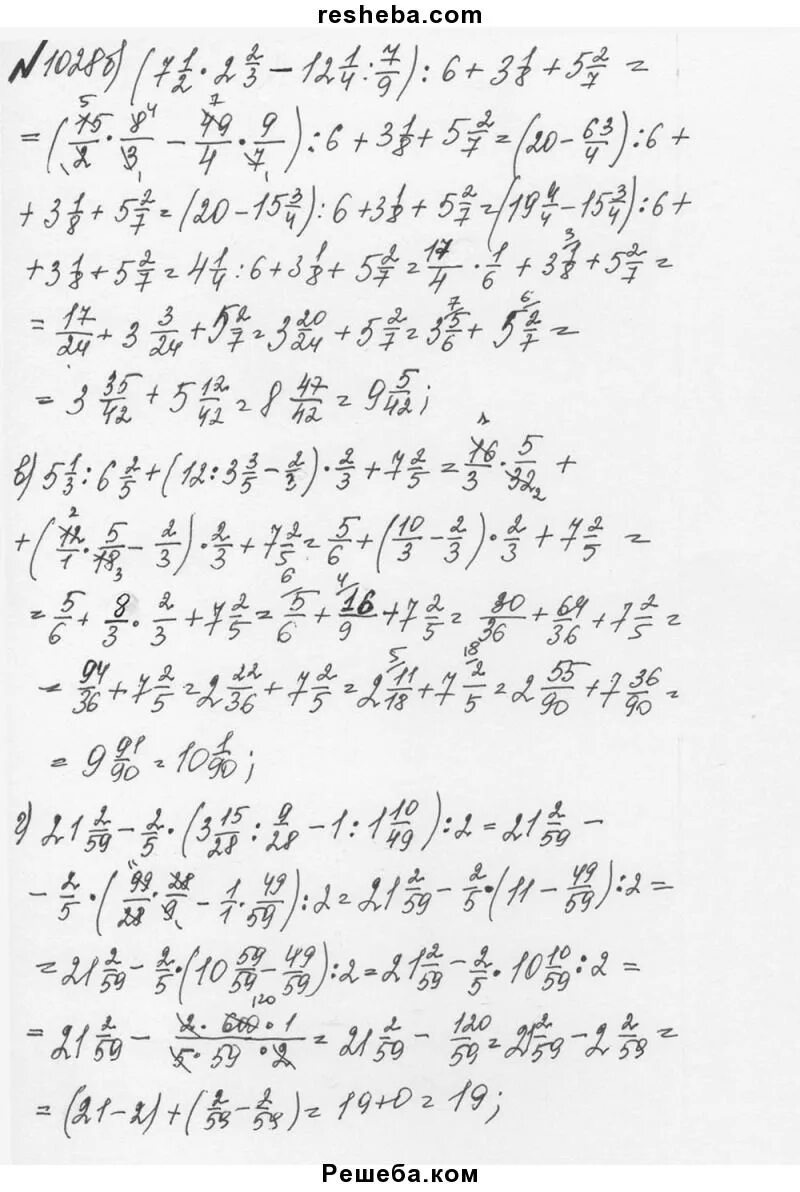 resheba.com
№1028б) (7 1/2 · 2 2/3 − 12 1/4 : 7/9) : 6 + 3 1/8 + 5 2/7 =
= (15/2 · 8/3 − 49/4 · 9/7) : 6 + 3 1/8 + 5 2/7 = (20 − 63/4) : 6 +
+ 3 1/8 + 5 2/7 = (20 − 15 3/4) : 6 + 3 1/8 + 5 2/7 = (19 4/4 − 15 3/4) : 6 +
+ 3 1/8 + 5 2/7 = 4 1/4 : 6 + 3 1/8 + 5 2/7 = 17/4 · 1/6 + 3 1/8 + 5 2/7 =
= 17/24 + 3 3/24 + 5 2/7 = 3 20/24 + 5 2/7 = 3 5/6 + 5 2/7 =
= 3 35/42 + 5 12/42 = 8 47/42 = 9 5/42;
в) 5 1/3 : 6 2/5 + (12 : 3 3/5 − 2/3) · 2/3 + 7 2/5 = 16/3 · 5/32 +
+ (12/1 · 5/18 − 2/3) · 2/3 + 7 2/5 = 5/6 + (10/3 − 2/3) · 2/3 + 7 2/5 =
= 5/6 + 8/3 · 2/3 + 7 2/5 = 5/6 + 16/9 + 7 2/5 = 30/36 + 64/36 + 7 2/5 =
= 94/36 + 7 2/5 = 2 22/36 + 7 2/5 = 2 11/18 + 7 2/5 = 2 55/90 + 7 36/90 =
= 9 91/90 = 10 1/90;
г) 21 2/59 − 2/5 · (3 15/28 : 9/28 − 1 : 1 10/49) : 2 = 21 2/59 −
− 2/5 · (99/28 · 28/9 − 1/1 · 49/59) : 2 = 21 2/59 − 2/5 · (11 − 49/59) : 2 =
= 21 2/59 − 2/5 · (10 59/59 − 49/59) : 2 = 21 2/59 − 2/5 · 10 10/59 : 2 =
= 21 2/59 − 2 · 600 · 1/5 · 59 · 2 = 21 2/59 − 120/59 = 21 2/59 − 2 2/59 =
= (21 − 2) + (2/59 − 2/59) = 19 + 0 = 19;
Решеба.ком